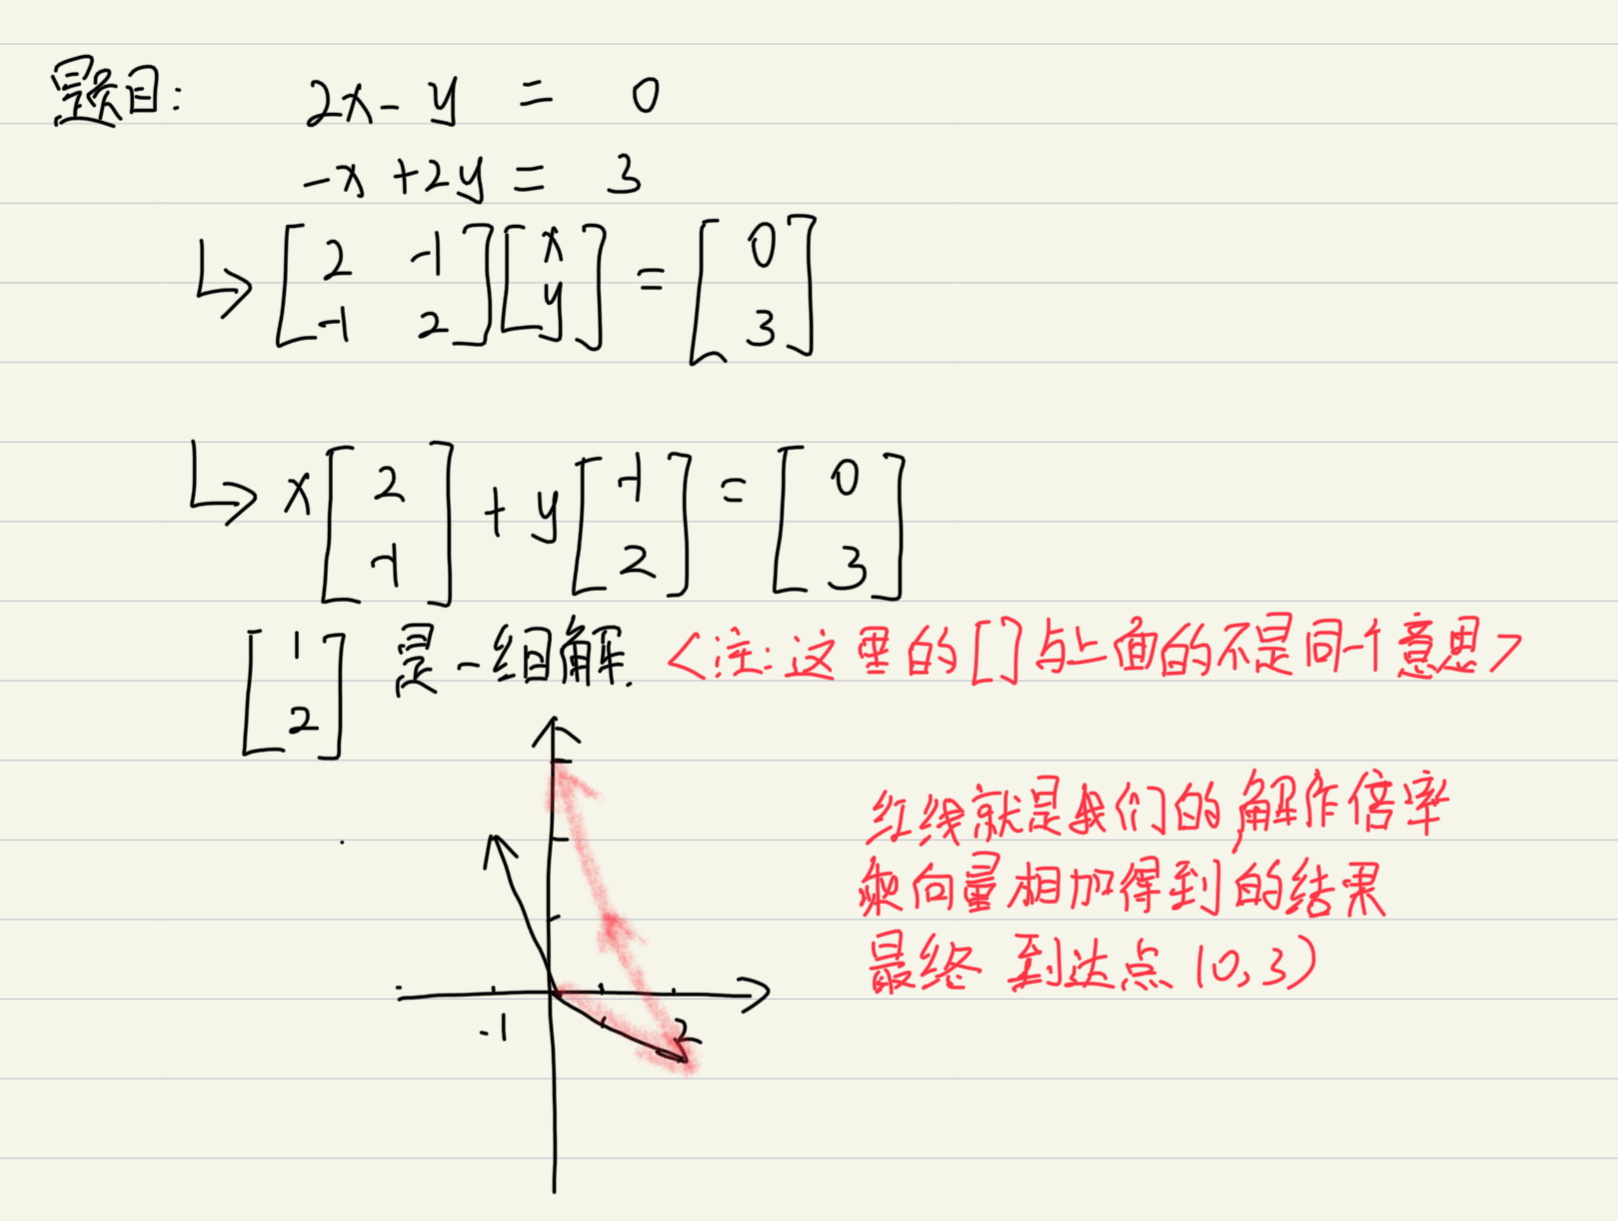 题目: 2x - y = 0
-x + 2y = 3
[2 -1] [x] = [0]
[-1 2] [y] [3]
x [2] + y [-1] = [0]
[-1] [2] [3]
[1] 是一组解. <注:这里的[]与上面的不是同一个意思>
[2]
红线就是我们的解作倍率
乘向量相加得到的结果
最终 到达点 (0,3)
-1 2